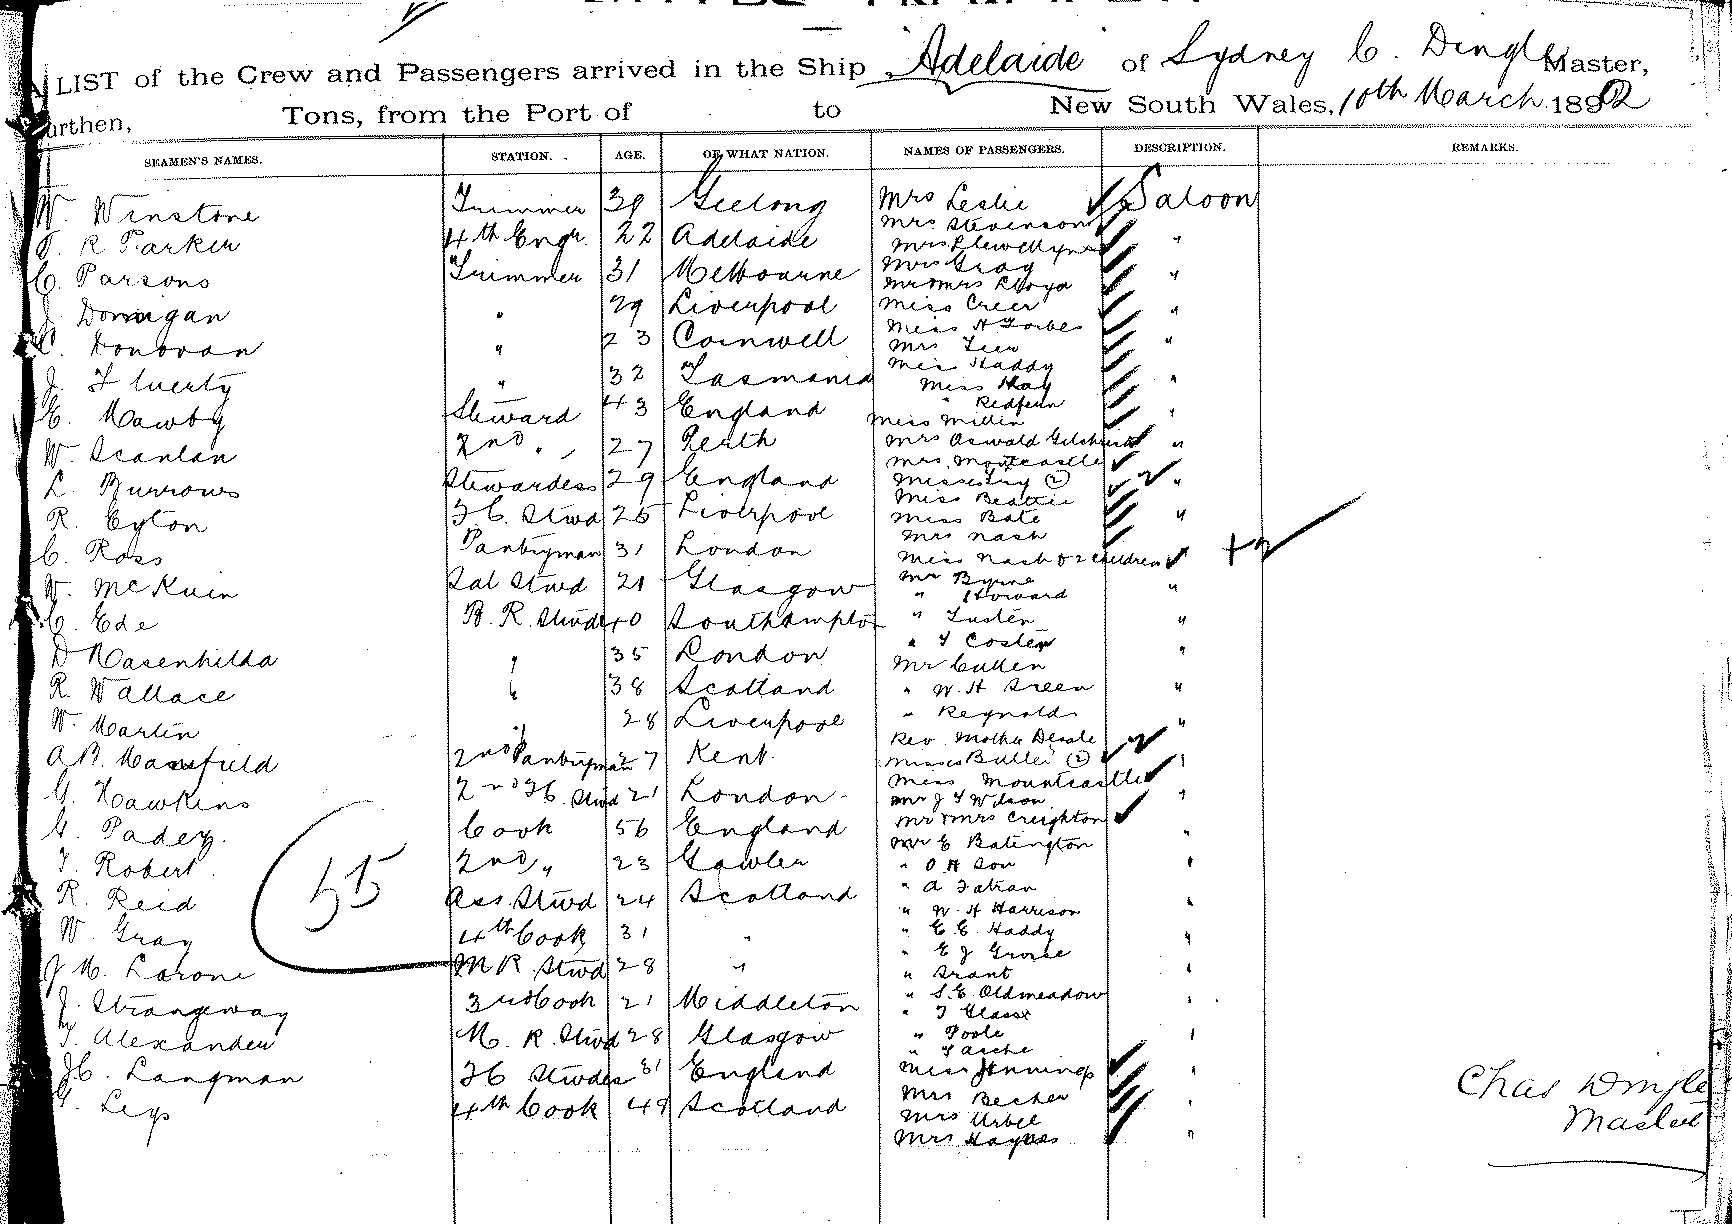 LIST of the Crew and Passengers arrived in the Ship "Adelaide" of Sydney C. Dingle Master,
urthen, Tons, from the Port of to New South Wales, 10th March 1892
SEAMEN'S NAMES. STATION. AGE. OF WHAT NATION. NAMES OF PASSENGERS. DESCRIPTION. REMARKS.
W. Winstone Trimmer 39 Geelong Mrs Leslie Saloon
Mrs Stevenson
R Parker 4th Engr. 22 Adelaide Mrs Llewellyn "
C. Parsons Trimmer 31 Melbourne Mrs Gray "
Mr & Mrs Lloyd
J Donigan " 29 Liverpool Miss Creer "
Miss H Forbes
Donovan " 23 Cornwell Mrs "
Miss Haddy
J. Fluerty " 32 Tasmania Miss Hay "
" Redfern
C. Mawby Steward 43 England Miss Millin "
W. Scanlan 2nd " 27 Perth Mrs Oswald Gilchrist "
Mrs Montcastle
L. Burrows Stewardess 29 England Misses (2) "
Miss Beattie
R. Eyton F C. Stwd 25 Liverpool Miss Bate "
Mrs Nash
C. Ross Pantryman 31 London Miss Nash & 2 children + 2
W. McKuin Sal Stwd 21 Glasgow Mr Byrne "
" Howard
C. Ede B. R. Stwd 40 Southampton " Lusten "
" T Coster
D Rasenhilda " 35 London Mr Cullen "
R. Wallace " 38 Scotland " W. H Green "
W. Martin " 28 Liverpool " Reynolds "
Rev. Mother
A B. Mansfield 2nd Pantryman 27 Kent Misses Butler (2) "
Miss Mountcastle
G. Hawkins 2nd F C. Stwd 21 London Mr J T Wilson "
G. Padey. Cook 56 England Mr & Mrs Creighton "
Mr E Batington
T. Robert. 2nd " 23 Gawler " O H Son "
" A
R. Reid Ass. Stwd 24 Scotland " W. H Harrison "
W. Gray 4th Cook 31 " " E. E. Haddy "
" E J Grosse
J M. Larone M R Stwd 28 " " Grant "
J. Strangeway 3rd Cook 21 Middleton " S. E. Oldmeadow "
" T Glasse
T. Alexander M. R. Stwd 28 Glasgow " Poole "
" Tasche
J C. Langman F C Stwdes 31 England Miss Jennings "
G. Legs 4th Cook 49 Scotland Mrs Becher
Mrs Urbel
Mrs Haynes "
55
Chas Dingle
Master